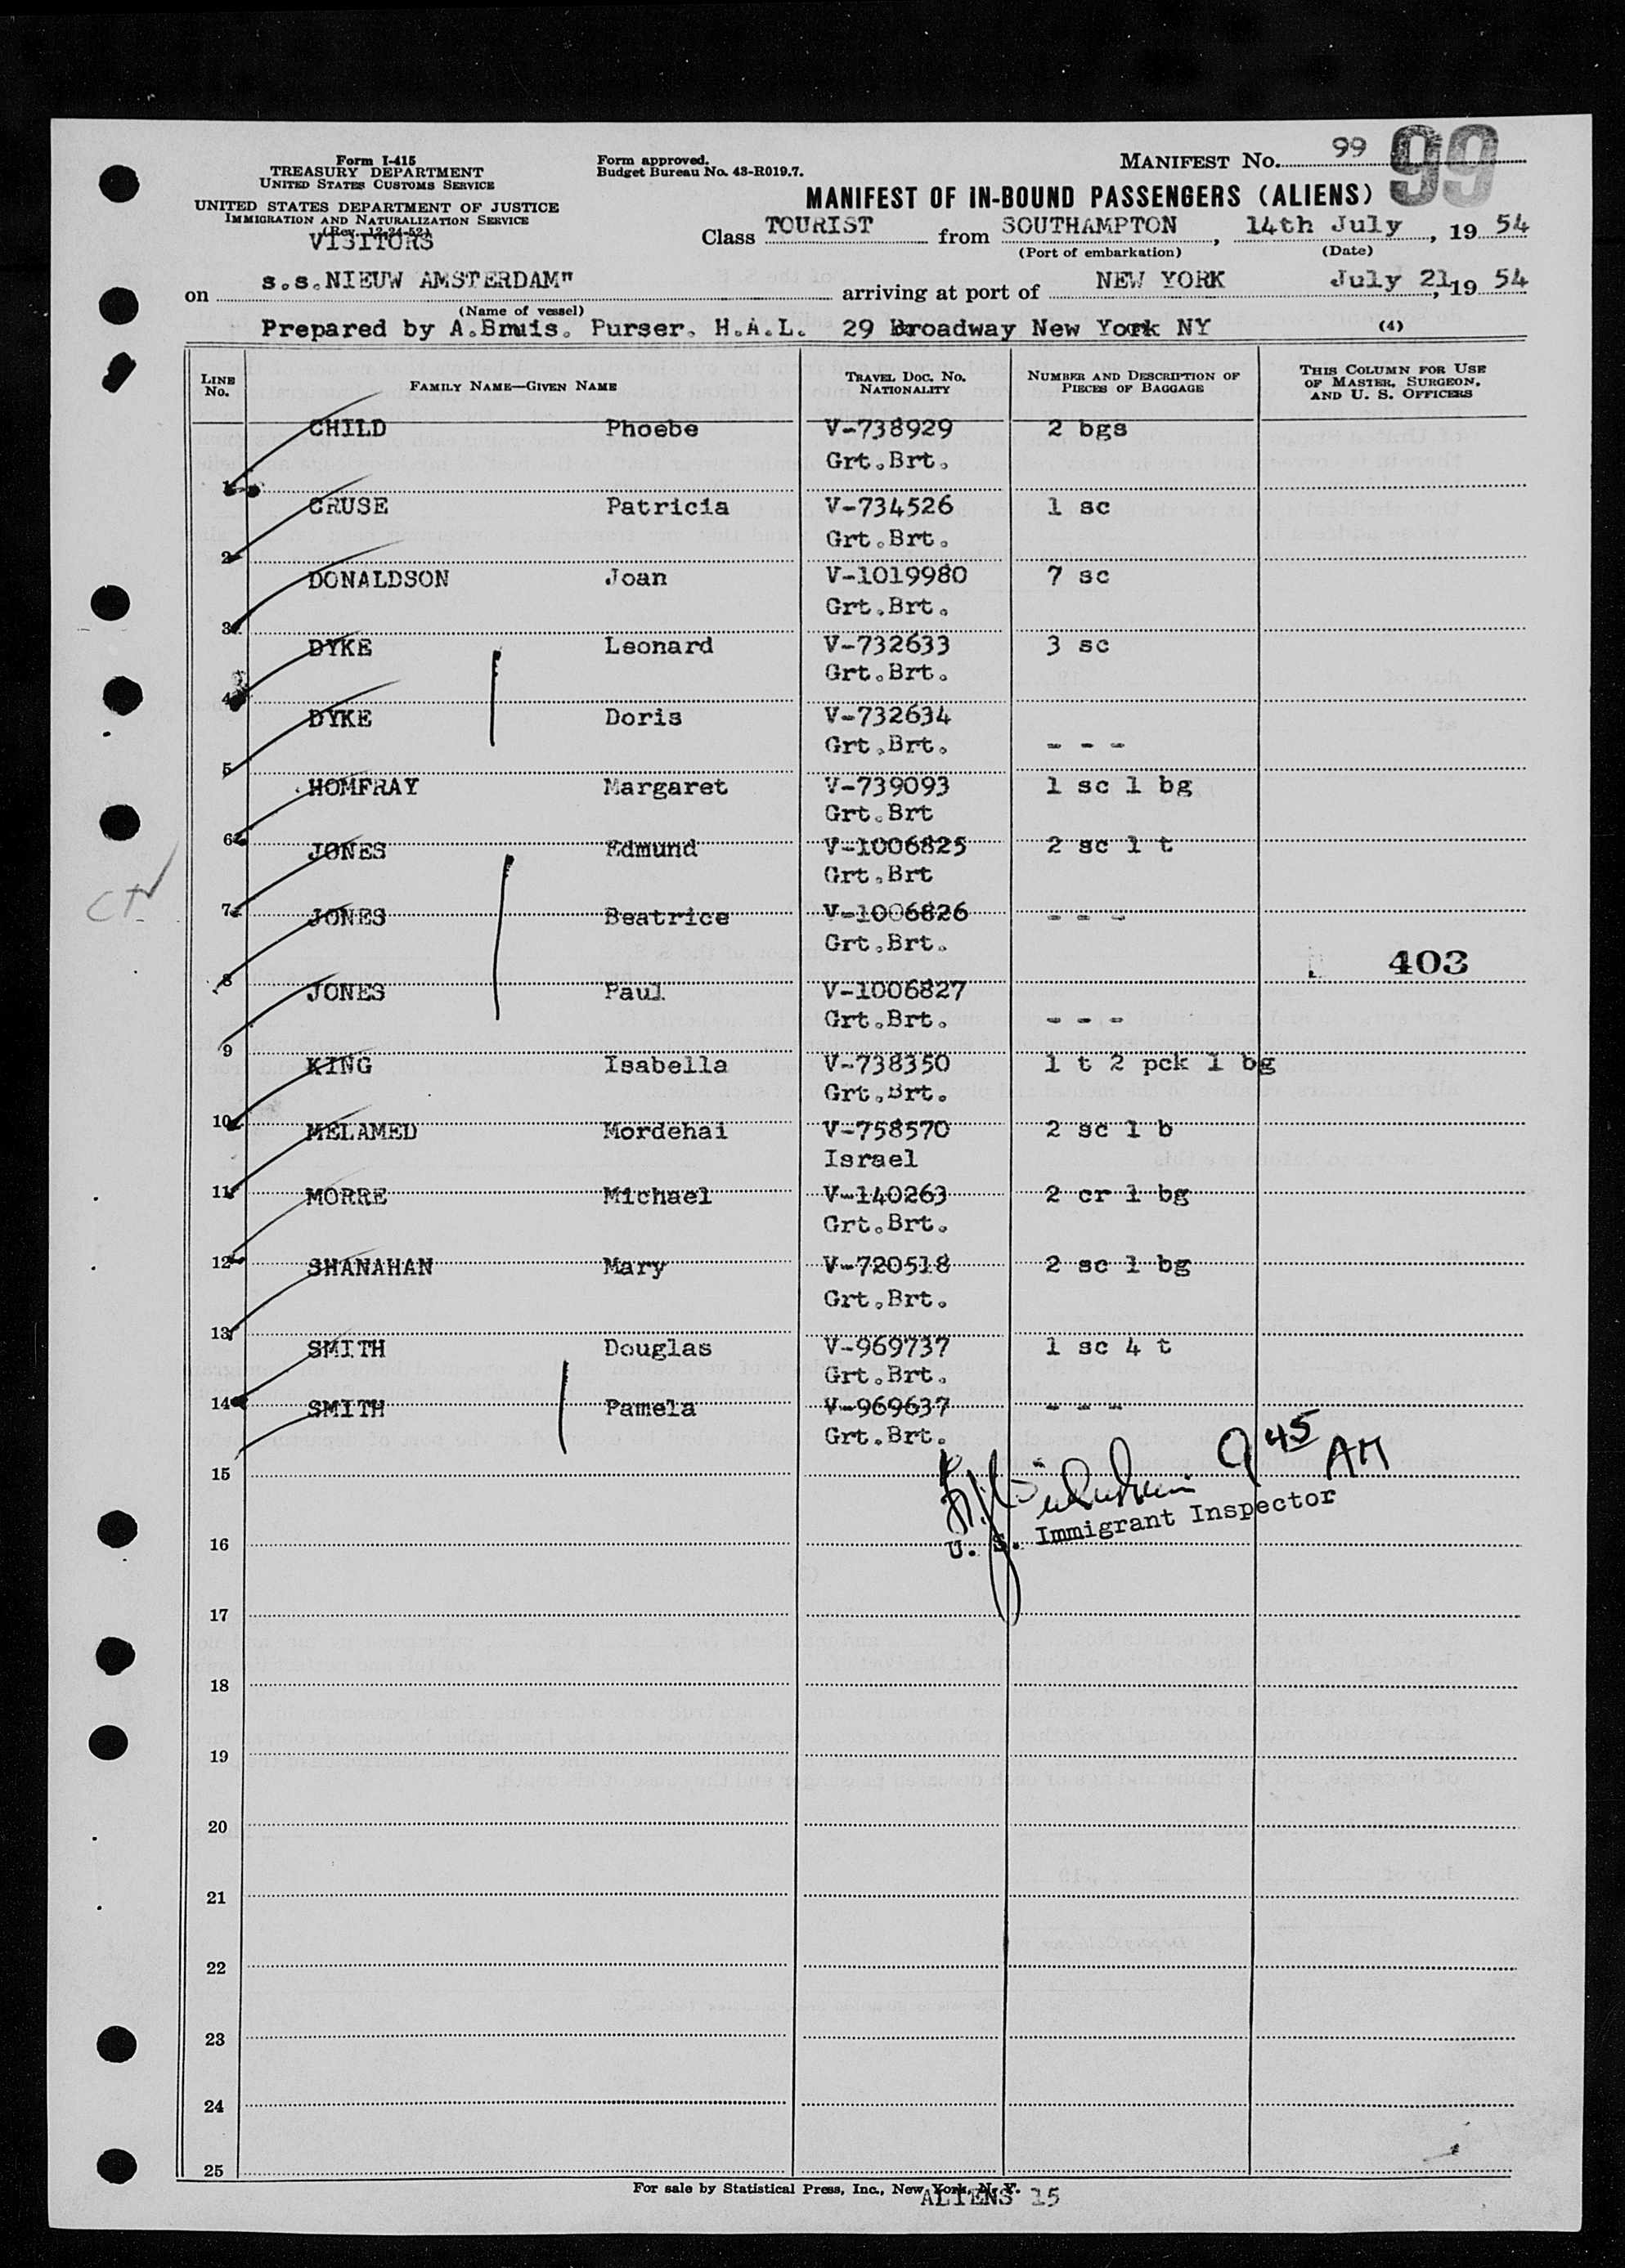 Form I-415
TREASURY DEPARTMENT
UNITED STATES CUSTOMS SERVICE
UNITED STATES DEPARTMENT OF JUSTICE
IMMIGRATION AND NATURALIZATION SERVICE
(Rev. 12-24-52)
VISITORS
Form approved.
Budget Bureau No. 43-R019.7.
MANIFEST NO. 99 99
MANIFEST OF IN-BOUND PASSENGERS (ALIENS)
Class TOURIST from SOUTHAMPTON, 14th July, 19 54
(Port of embarkation) (Date)
on s.s.NIEUW AMSTERDAM" arriving at port of NEW YORK July 21, 19 54
(Name of vessel)
Prepared by A.Bruis. Purser. H.A.L. 29 Broadway New York NY (4)
LINE NO. FAMILY NAME—GIVEN NAME TRAVEL DOC. NO. NATIONALITY NUMBER AND DESCRIPTION OF PIECES OF BAGGAGE THIS COLUMN FOR USE OF MASTER, SURGEON, AND U. S. OFFICERS
CHILD Phoebe V-738929 2 bgs
Grt.Brt.
1
CRUSE Patricia V-734526 1 sc
Grt.Brt.
2
DONALDSON Joan V-1019980 7 sc
Grt.Brt.
3
DYKE Leonard V-732633 3 sc
Grt.Brt.
4
DYKE Doris V-732634
Grt.Brt. - - -
5
HOMFRAY Margaret V-739093 1 sc 1 bg
Grt.Brt
6
JONES Edmund V-1006825 2 sc 1 t
Grt.Brt
7
JONES Beatrice V-1006826 - - -
Grt.Brt.
403
8
JONES Paul V-1006827
Grt.Brt. - - -
9
KING Isabella V-738350 1 t 2 pck 1 bg
Grt.Brt.
10
MELAMED Mordehai V-758570 2 sc 1 b
Israel
11
MORRE Michael V-140263 2 cr 1 bg
Grt.Brt.
12
SHANAHAN Mary V-720518 2 sc 1 bg
Grt.Brt.
13
SMITH Douglas V-969737 1 sc 4 t
Grt.Brt.
14
SMITH Pamela V-969637 - - -
Grt.Brt.
9 45 AM
15
U. S. Immigrant Inspector
16
17
18
19
20
21
22
23
24
25
For sale by Statistical Press, Inc., New York, N. Y.
ALIENS 15